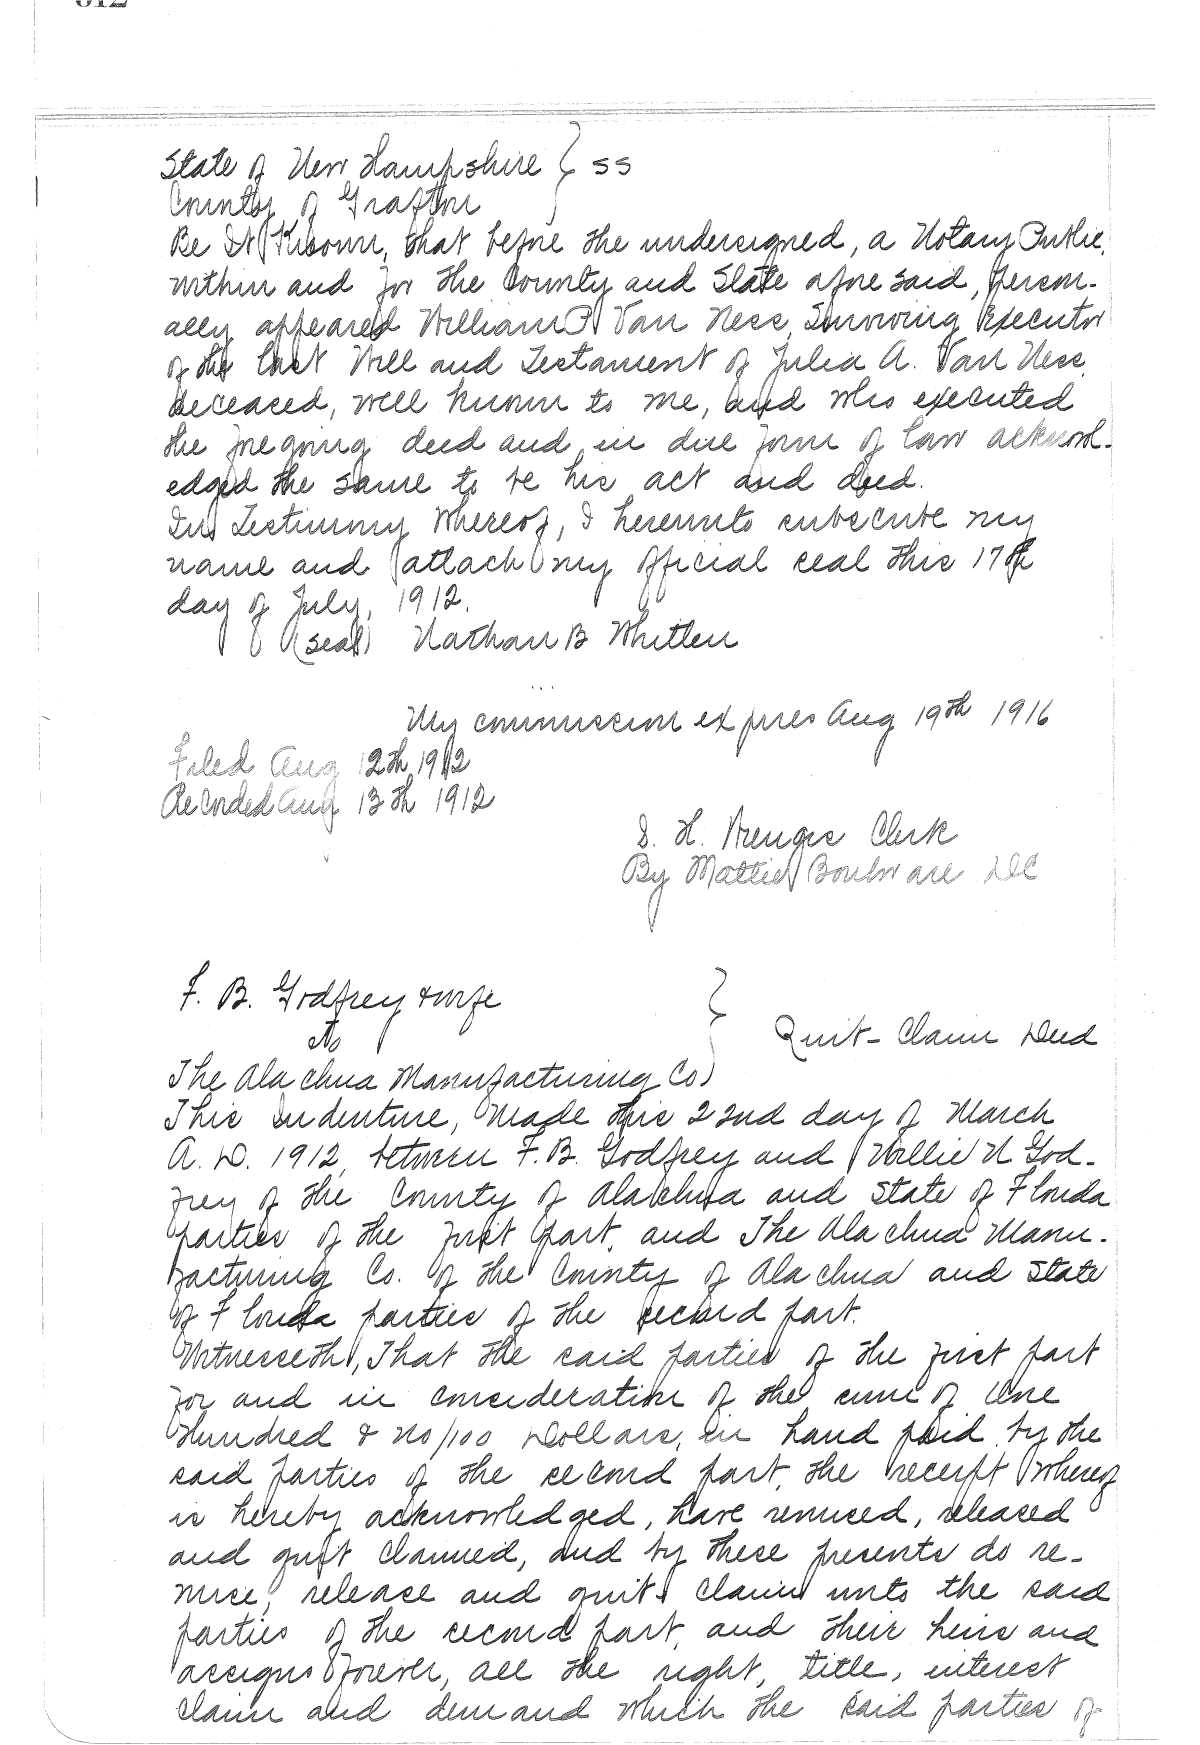 State of New Hampshire } SS
County of Grafton
Be It Known, that before the undersigned, a Notary Public,
within and for the County and State afore said, person-
ally appeared William P Van Ness, Surviving Executor
of the last Will and Testament of Julia A. Van Ness,
deceased, well known to me, and who executed
the foregoing deed and in due form of law acknowl-
edged the same to be his act and deed.
In Testimony Whereof, I hereunto subscribe my
name and attach my official seal this 17th
day of July, 1912.
(Seal) Nathan B Whitten
My commission expires Aug 19th 1916
Filed Aug 12th 1912
Recorded Aug 13th 1912
S. H. Wienges Clerk
By Mattie Boulware DC
F. B. Godfrey & wife
to
} Quit-Claim Deed
The Alachua Manufacturing Co
This Indenture, Made this 22nd day of March
A. D. 1912, between F. B. Godfrey and Willie N God-
frey of the County of Alachua and State of Florida
parties of the first part, and The Alachua Manu-
facturing Co. of the County of Alachua and State
of Florida parties of the second part.
Witnesseth, That the said parties of the first part
for and in consideration of the sum of One
Hundred & no/100 Dollars, in hand paid by the
said parties of the second part, the receipt whereof
is hereby acknowledged, have remised, released
and quit claimed, and by these presents do re-
mise, release and quit claim unto the said
parties of the second part, and their heirs and
assigns forever, all the right, title, interest
claim and demand which the said parties of